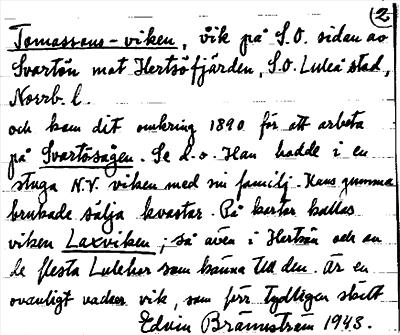 (2)
Tomassons-viken, vik på S.O. sidan av
Svartön mot Hertsöfjärden, S.O. Luleå stad,
Norrb. l.
och kom dit omkring 1890 för att arbeta
på Svartösågen. Se d.o. Han hade i en
stuga N.V. viken med sin familj. Hans gumma
brukade sälja kvastar. På kartor kallas
viken Laxviken; så även i Hertsön och av
de flesta Lulebor som känna till den. Är en
ovanligt vacker vik, som förr tydligen
Edvin Brännström 1943.